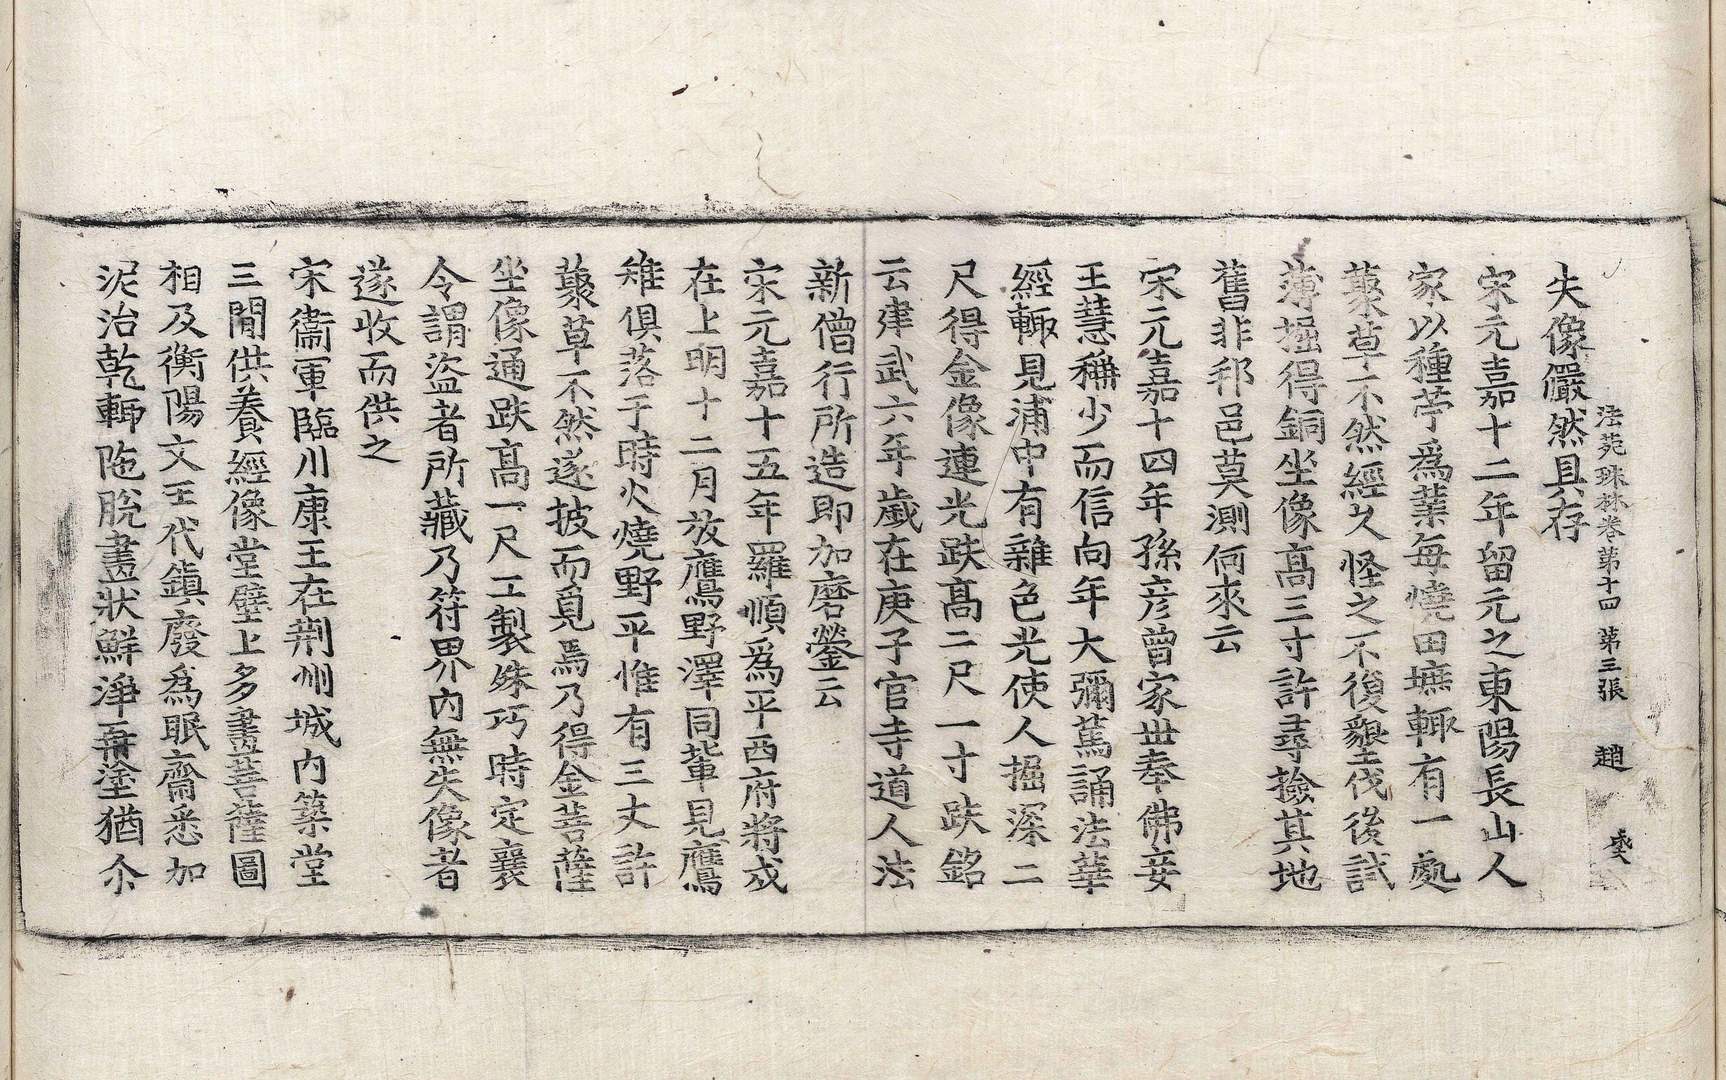 法苑珠林卷第十四 第三張 趙
失像儼然具存
宋元嘉十二年留元之東陽長山人
家以種苧爲業每燒田墟輒有一處
藂草不然經久怪之不復墾伐後試
薄掘得銅坐像高三寸許尋撿其地
舊非邦邑莫測何來云
宋元嘉十四年孫彦曾家丗奉佛妾
王慧稱少而信向年大彌篤誦法華
經輒見浦中有雜色光使人掘深二
尺得金像連光趺高二尺一寸趺銘
云建武六年歲在庚子官寺道人法
新僧行所造即加磨鎣云
宋元嘉十五年羅順爲平西府將戍
在上明十二月放鷹野澤同輩見鷹
雉俱落于時火燒野平惟有三丈許
藂草不然遂披而覓焉乃得金菩薩
坐像通趺高一尺工製殊巧時定襄
令謂盜者所藏乃符界內無失像者
遂收而供之
宋衞軍臨川康王在荆州城內築堂
三閒供養經像堂壁上多畫菩薩圖
相及衡陽文王代鎮廢爲眠齋悉加
泥治乾輒陁脫畫狀鮮淨再塗猶尒